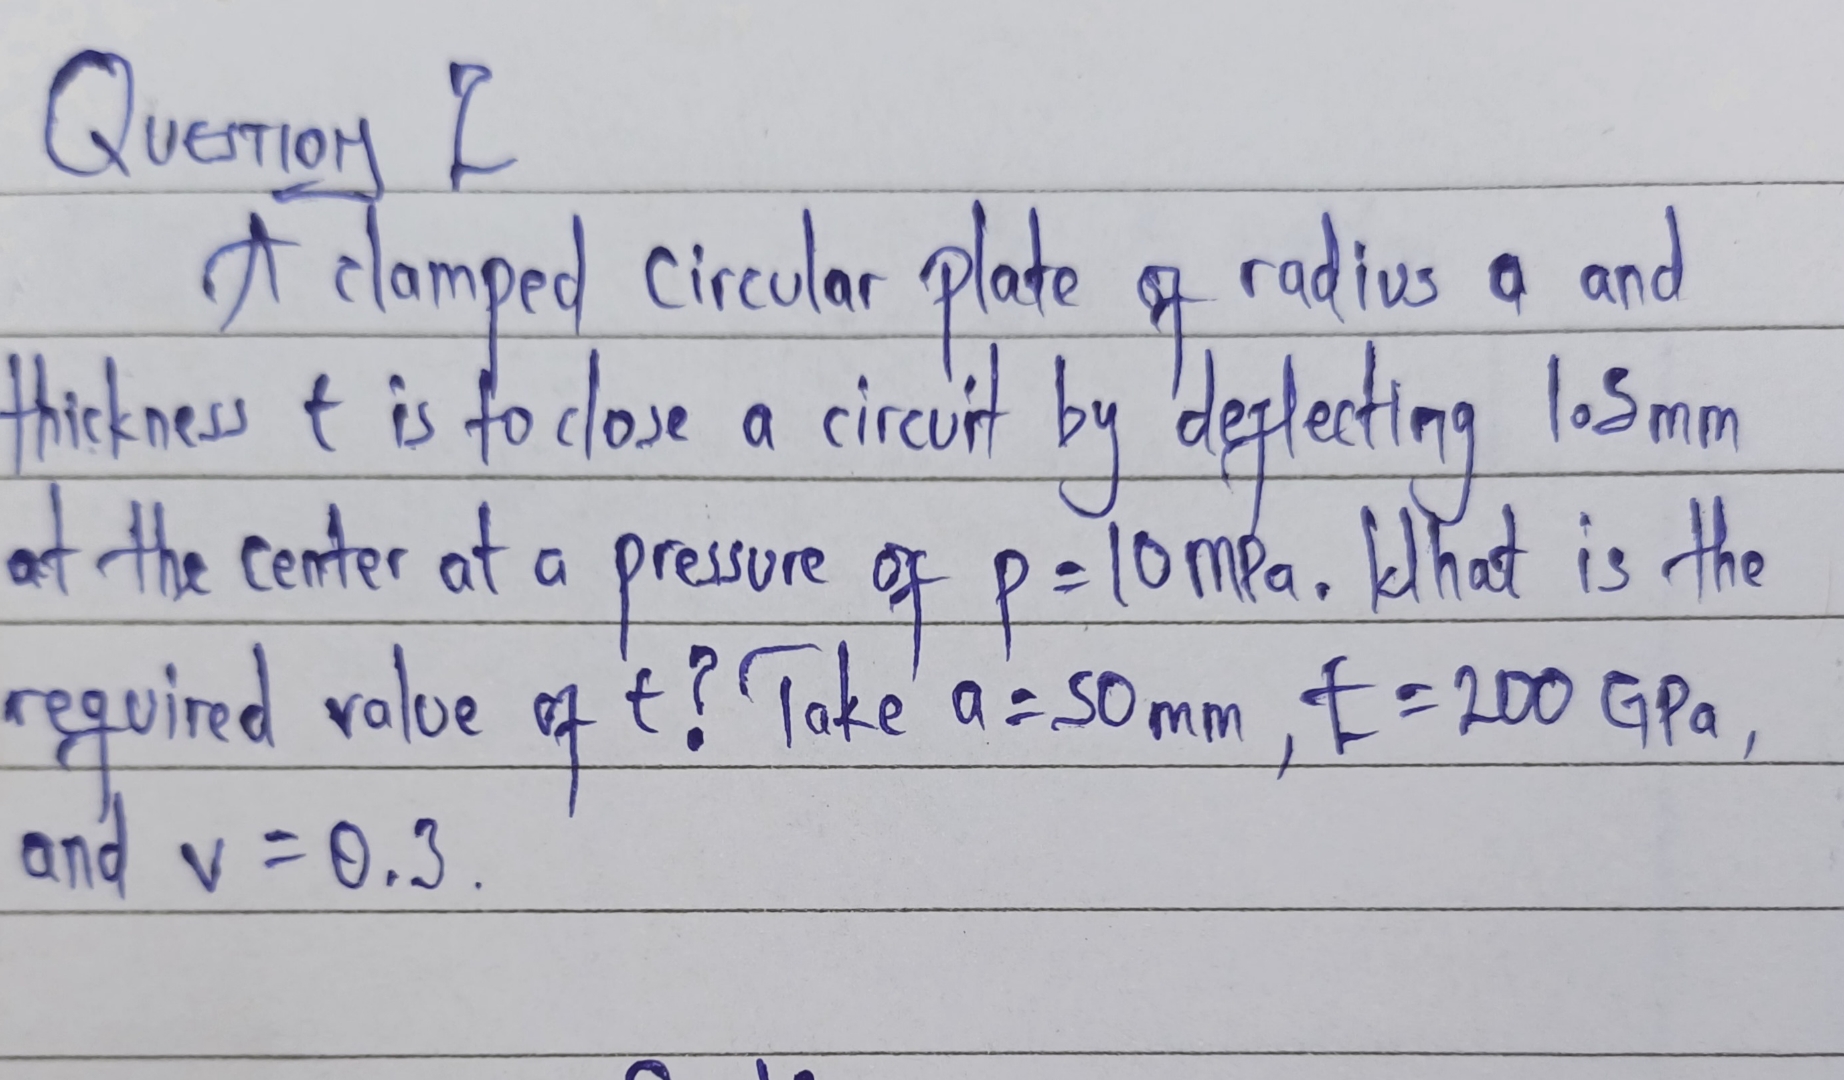 QUESTION 2
A clamped circular plate of radius a and
thickness t is to close a circuit by deflecting 1.5mm
at the center at a pressure of p=10mPa. What is the
required value of t? Take a=50mm, E=200 GPa,
and v=0.3.